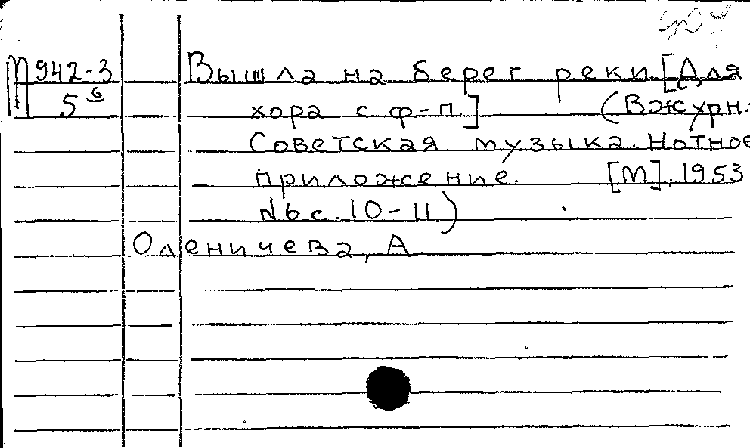 П942-3 Вышла на берег реки [Для
5 6 хора с ф-п.] (В журн.
Советская музыка. Нотное
приложение. [М], 1953
№ 6 с. 10-11)
Оленичева, А